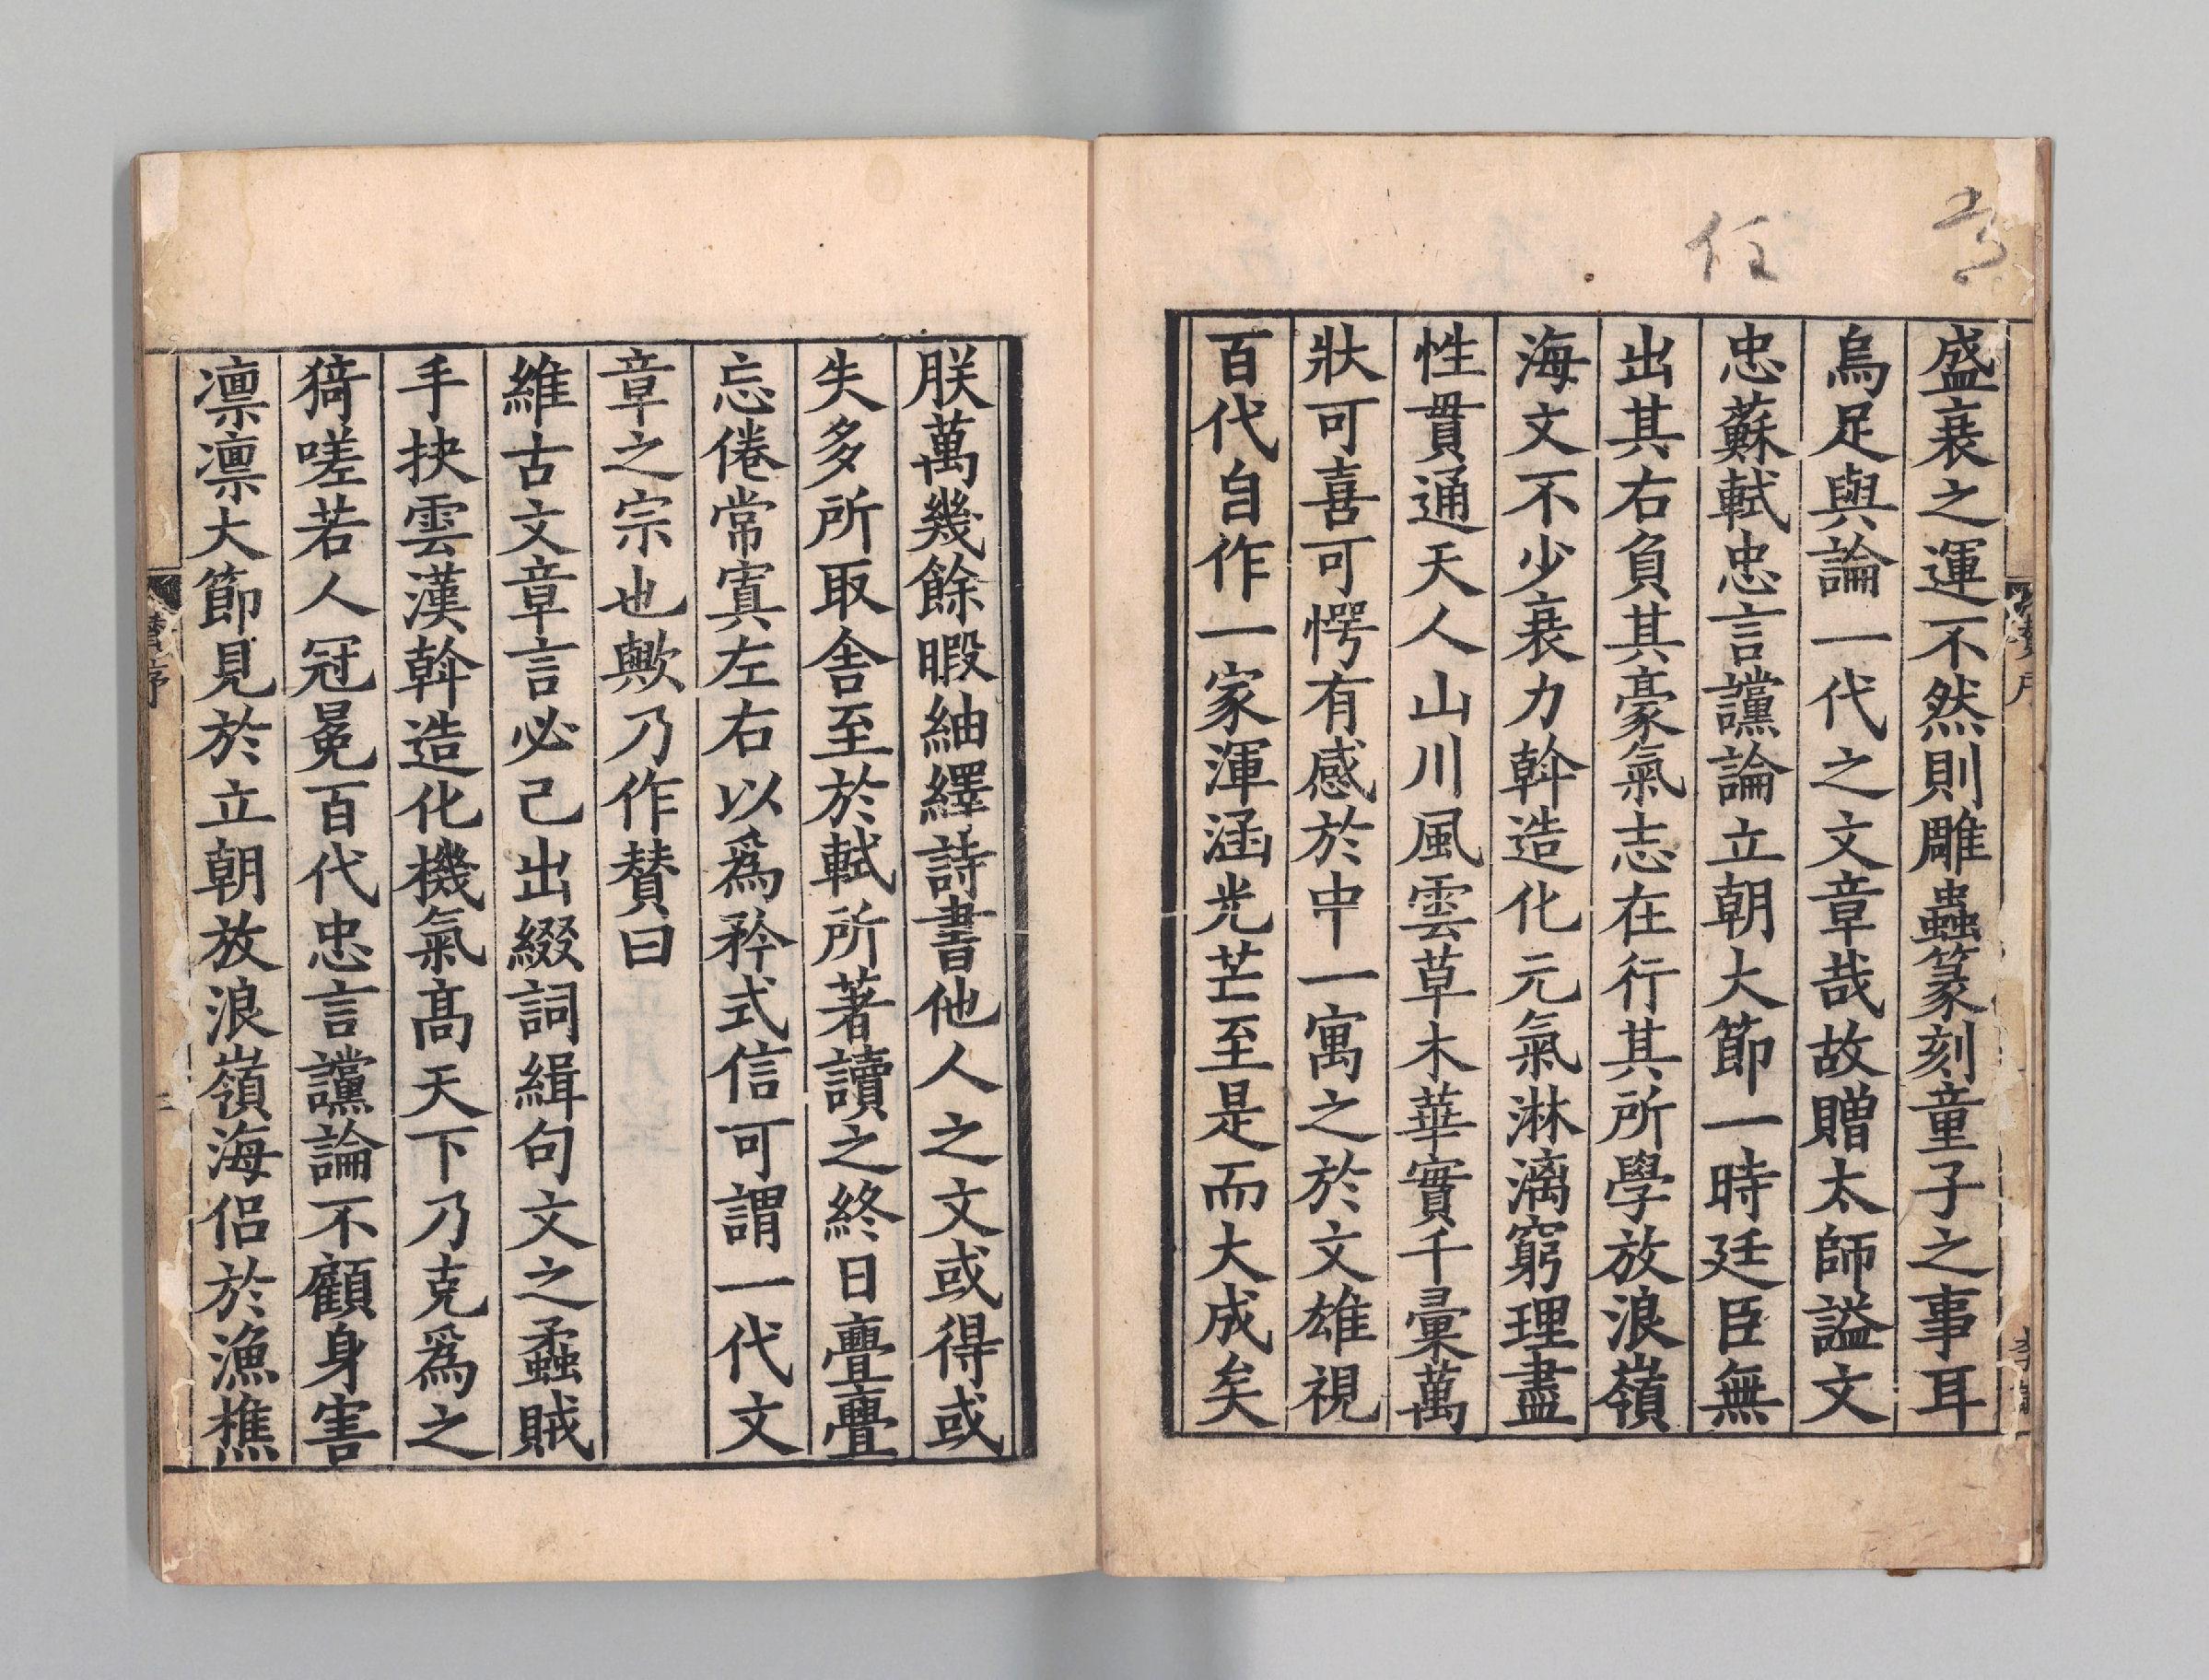 盛衰之運不然則雕蟲篆刻童子之事耳
烏足與論一代之文章哉故贈太師謚文
忠蘇軾忠言讜論立朝大節一時廷臣無
出其右負其豪氣志在行其所學放浪嶺
海文不少衰力斡造化元氣淋漓窮理盡
性貫通天人山川風雲草木華實千彙萬
狀可喜可愕有感於中一寓之於文雄視
百代自作一家渾涵光芒至是而大成矣
朕萬幾餘暇紬繹詩書他人之文或得或
失多所取舍至於軾所著讀之終日亹亹
忘倦常寘左右以爲矜式信可謂一代文
章之宗也歟乃作賛曰
維古文章言必己出綴詞緝句文之蟊賊
手抉雲漢斡造化機氣高天下乃克爲之
猗嗟若人冠冕百代忠言讜論不顧身害
凛凛大節見於立朝放浪嶺海侣於漁樵
任
賛序